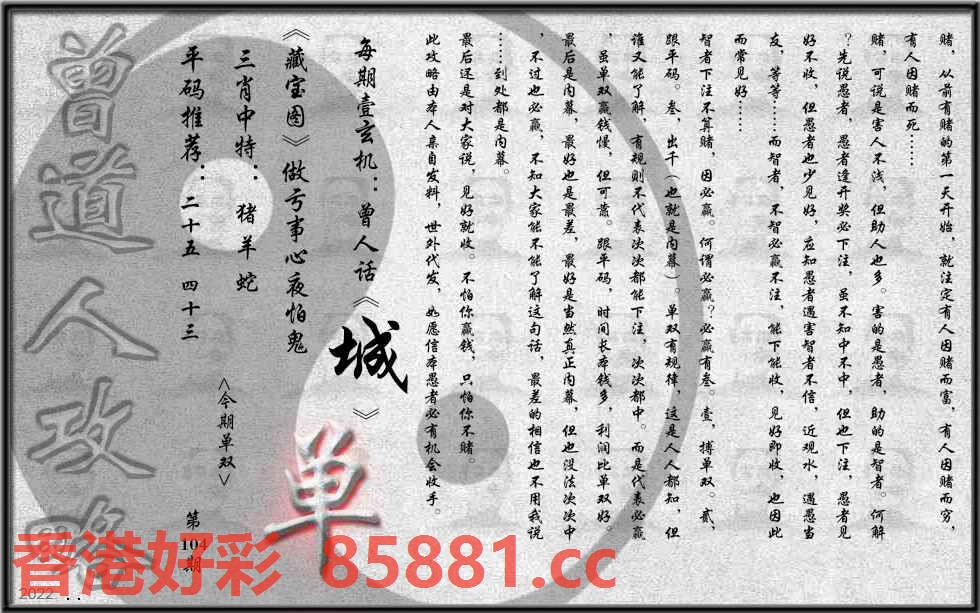 赌，从前有赌的第一天开始，就注定有人因赌而富，有人因赌而穷，
有人因赌而死……
赌，可说是害人不浅，但助人也多。害的是愚者，助的是智者。何解
？先说愚者，愚者逢开奖必下注，虽不知中不中，但也下注，愚者见
好不收，但愚者也少见好，应知愚者遇害智者不信，近观水，遇愚当
友，等等……而智者，不智必赢不注，能下能收，见好即收，也因此
而常见好……
智者下注不算赌，因必赢。何谓必赢？必赢有叁。壹，搏单双。贰，
跟平码。叁，出千（也就是内幕）。单双有规律，这是人人都知，但
谁又能了解，有规则不代表次次都能下注，次次都中。而是代表必赢
，虽单双赢钱慢，但可靠。跟平码，时间长本钱多，利润比单双好。
最后是内幕，最好也是最差，最好是当然真正内幕，但也没法次次中
，不过也必赢，不知大家能不能了解这句话，最差的相信也不用我说
……到处都是内幕。
最后还是对大家说，见好就收。不怕你赢钱，只怕你不赌。
此攻略由本人亲自发料，世外代发，如愿信本愚者必有机会收手。
每期壹玄机：曾人话《城》
《藏宝图》做亏事心夜怕鬼
三肖中特：猪羊蛇
平码推荐：二十五 四十三
<今期单双>
单
第104期
曾道人攻略
香港好彩 85881.cc
2022